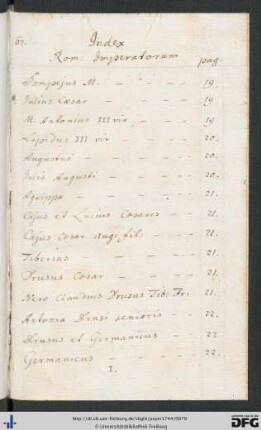 67.
Index
Rom. Imperatorum
pag.
Pompejus M. - - - - 19.
Julius Cæsar - - - - 19
M. Antonius III vir - - - 19.
Lepidus III vir - - - - 20.
Augustus - - - - 20.
Augusti - - - - 20.
Agrippa - - - - 21.
Cajus et Lucius Cæsares - - 21.
Cajus Cæsar Aug. fil. - - 21.
Tiberius - - - - 21.
Drusus Cæsar - - - - 21.
Nero Claudius Drusus Tib. Fr. 21.
Antonia Drusi - - 22
Drusus et Germanicus - - 22.
Germanicus - - - - 22.
1.
http://dl.ub.uni-freiburg.de/diglit/
© Universitätsbibliothek Freiburg
gefördert durch
DFG